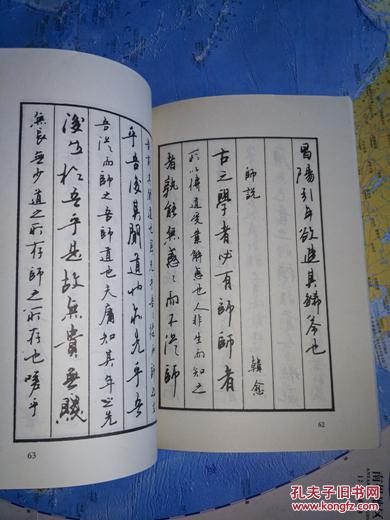 昌陽引年欲進其豨苓也
師說
韓愈
古之學者必有師師者
所以傳道受業解惑也人非生而知之
者孰能無惑〻而不從師
62
乎吾後其聞道也亦先乎吾
吾從而師之吾師道也夫庸知其年之先
後生於吾乎是故無貴無賤
無長無少道之所存師之所存也嗟乎
63
南
孔夫子旧书网